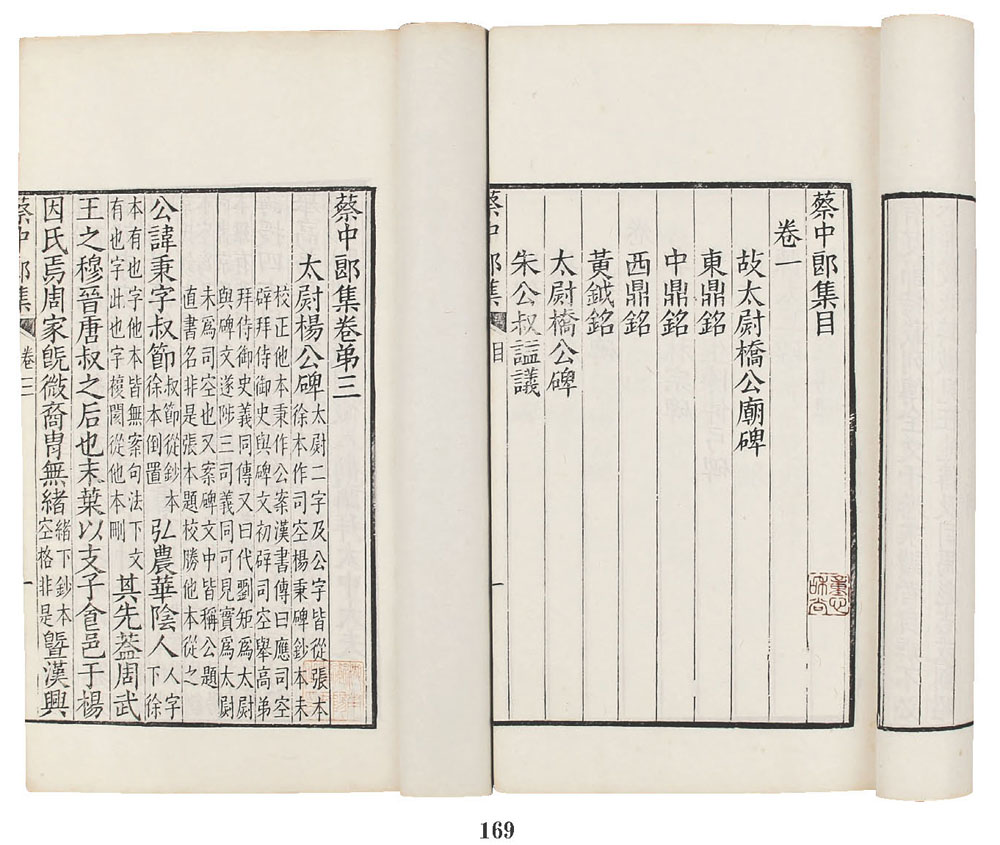 蔡中郎集目
卷一
故太尉橋公廟碑
東鼎銘
中鼎銘
西鼎銘
黃鉞銘
太尉橋公碑
朱公叔謚議
蔡中郎集 目 一
蔡中郎集卷弟三
太尉楊公碑
太尉二字及公字皆從張本
徐本作司空楊秉碑鈔本未
校正他本秉作公案漢書傳曰應司空
辟拜侍御史與碑文初辟司空舉高弟
拜侍御史義同傳又曰代劉矩為太尉
與碑文遂陟三司義同可見實為太尉
未為司空也又案碑文中皆稱公題
直書名非是張本題校勝他本從之
公諱秉字叔節
叔節從鈔本
徐本倒置
弘農華陰人
人字
下徐
本有也字他本皆無案句法下文
有也字此也字複閡從他本刪
其先葢周武
王之穆晉唐叔之后也末葉以支子食邑于楊
因氏焉周家旣微裔冑無緒
緒下鈔本
空格非是
曁漢興
蔡中郎集 卷三 一
169